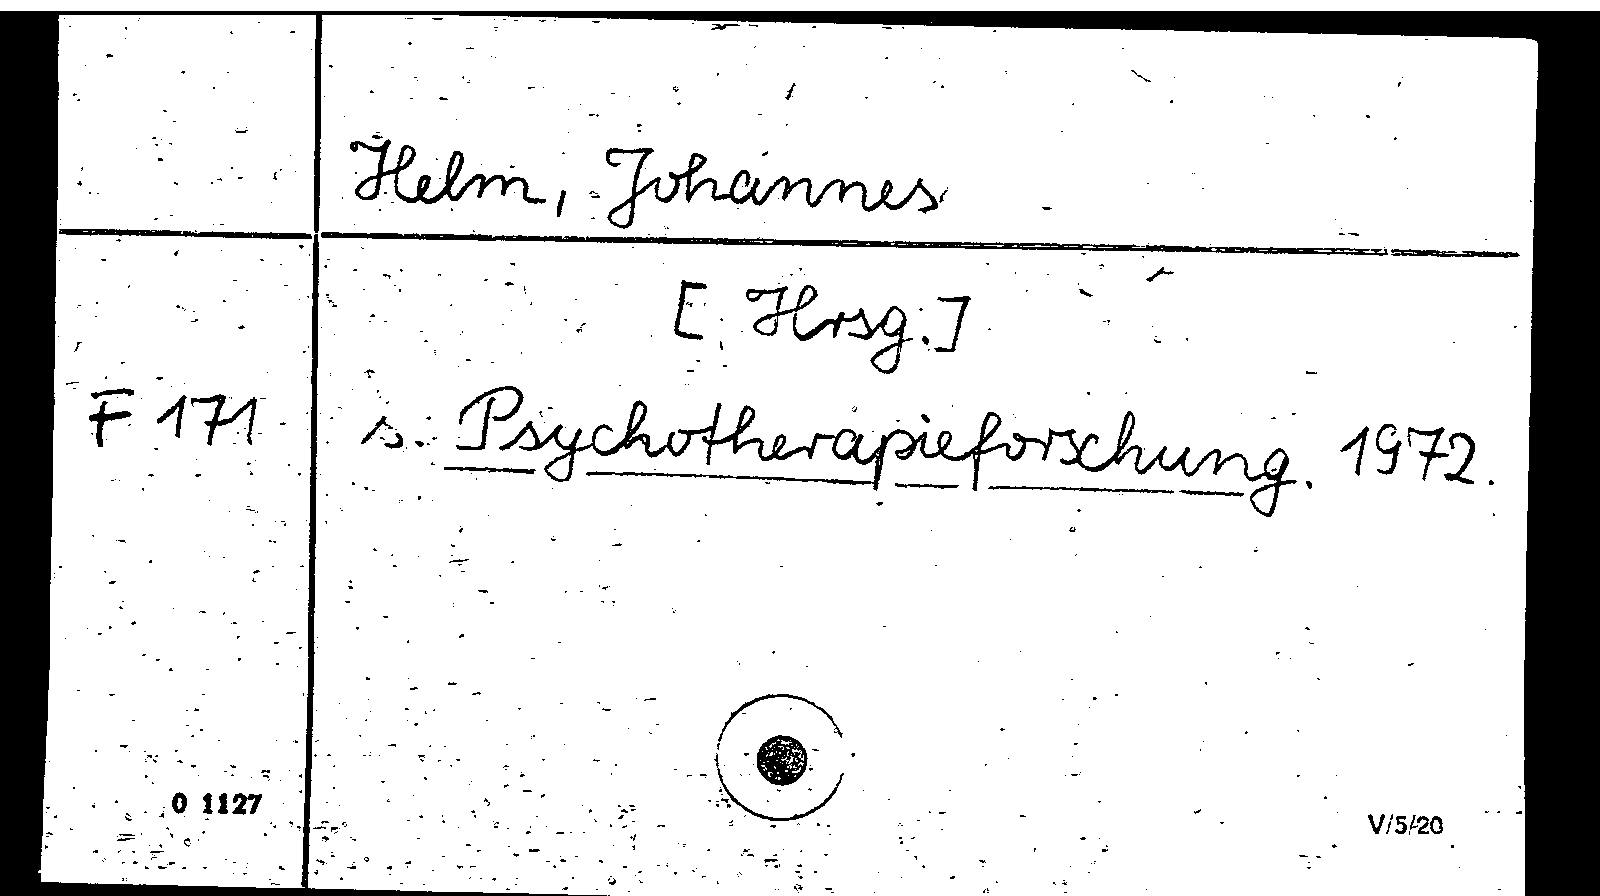 Helm, Johannes
[Hrsg.]
F 171 s. Psychotherapieforschung. 1972.
0 1127
V/5/20